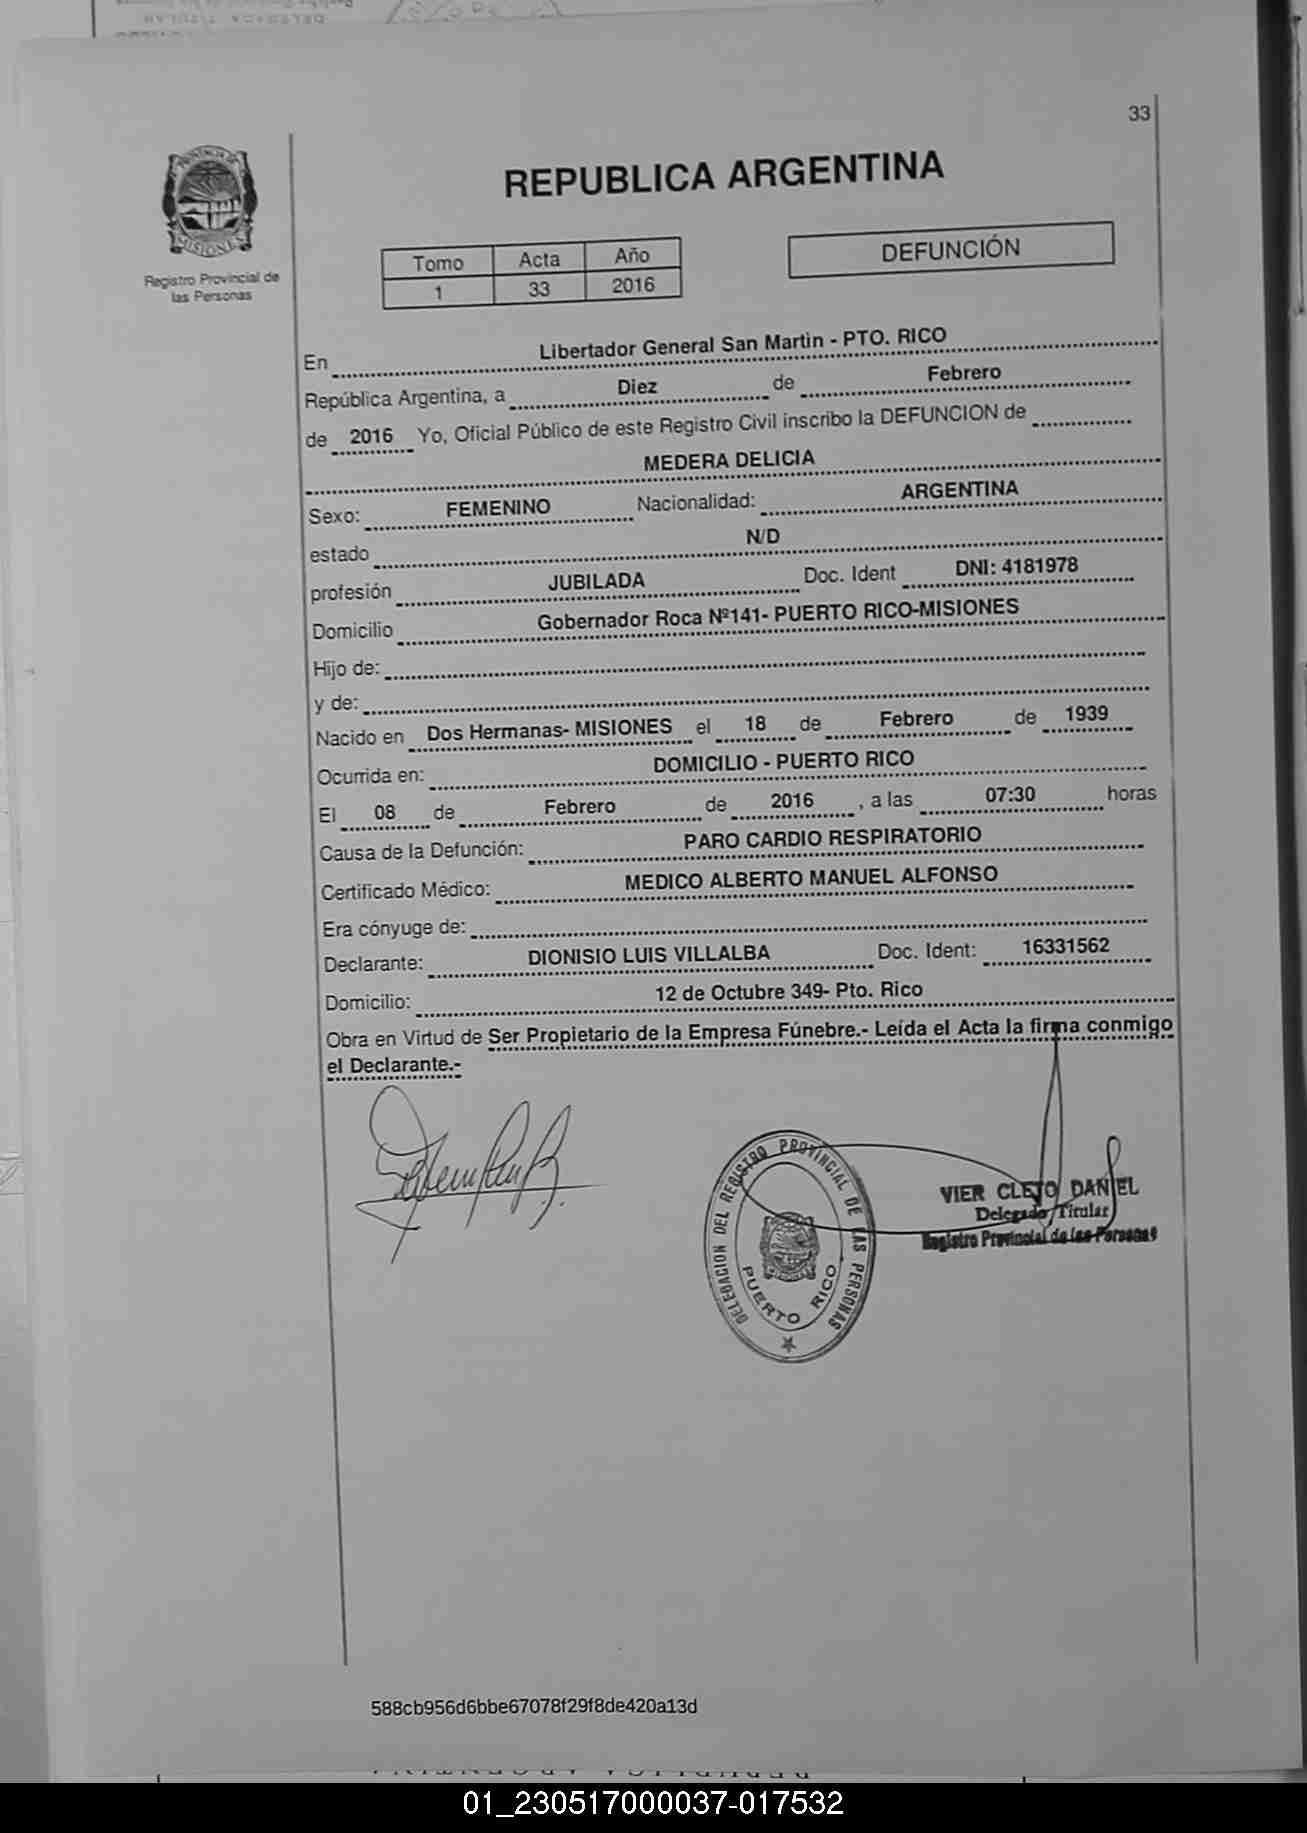 DELEGADA TITULAR
33
PROVINCIA DE
MISIONES
Registro Provincial de
las Personas
REPUBLICA ARGENTINA
Tomo Acta Año
1 33 2016
DEFUNCIÓN
En Libertador General San Martin - PTO. RICO
República Argentina, a Diez de Febrero
de 2016 Yo, Oficial Público de este Registro Civil inscribo la DEFUNCION de
MEDERA DELICIA
Sexo: FEMENINO Nacionalidad: ARGENTINA
estado N/D
profesión JUBILADA Doc. Ident DNI: 4181978
Domicilio Gobernador Roca Nº141- PUERTO RICO-MISIONES
Hijo de:
y de:
Nacido en Dos Hermanas- MISIONES el 18 de Febrero de 1939
Ocurrida en: DOMICILIO - PUERTO RICO
El 08 de Febrero de 2016 , a las 07:30 horas
Causa de la Defunción: PARO CARDIO RESPIRATORIO
Certificado Médico: MEDICO ALBERTO MANUEL ALFONSO
Era cónyuge de:
Declarante: DIONISIO LUIS VILLALBA Doc. Ident: 16331562
Domicilio: 12 de Octubre 349- Pto. Rico
Obra en Virtud de Ser Propietario de la Empresa Fúnebre.- Leída el Acta la firma conmigo
el Declarante.-
DELEGACION DEL REGISTRO PROVINCIAL DE LAS PERSONAS
PUERTO RICO
VIER CLETO DANIEL
Delegado Titular
Registro Provincial de las Personas
588cb956d6bbe67078f29f8de420a13d
REPUBLICA ARGENTINA
01_230517000037-017532